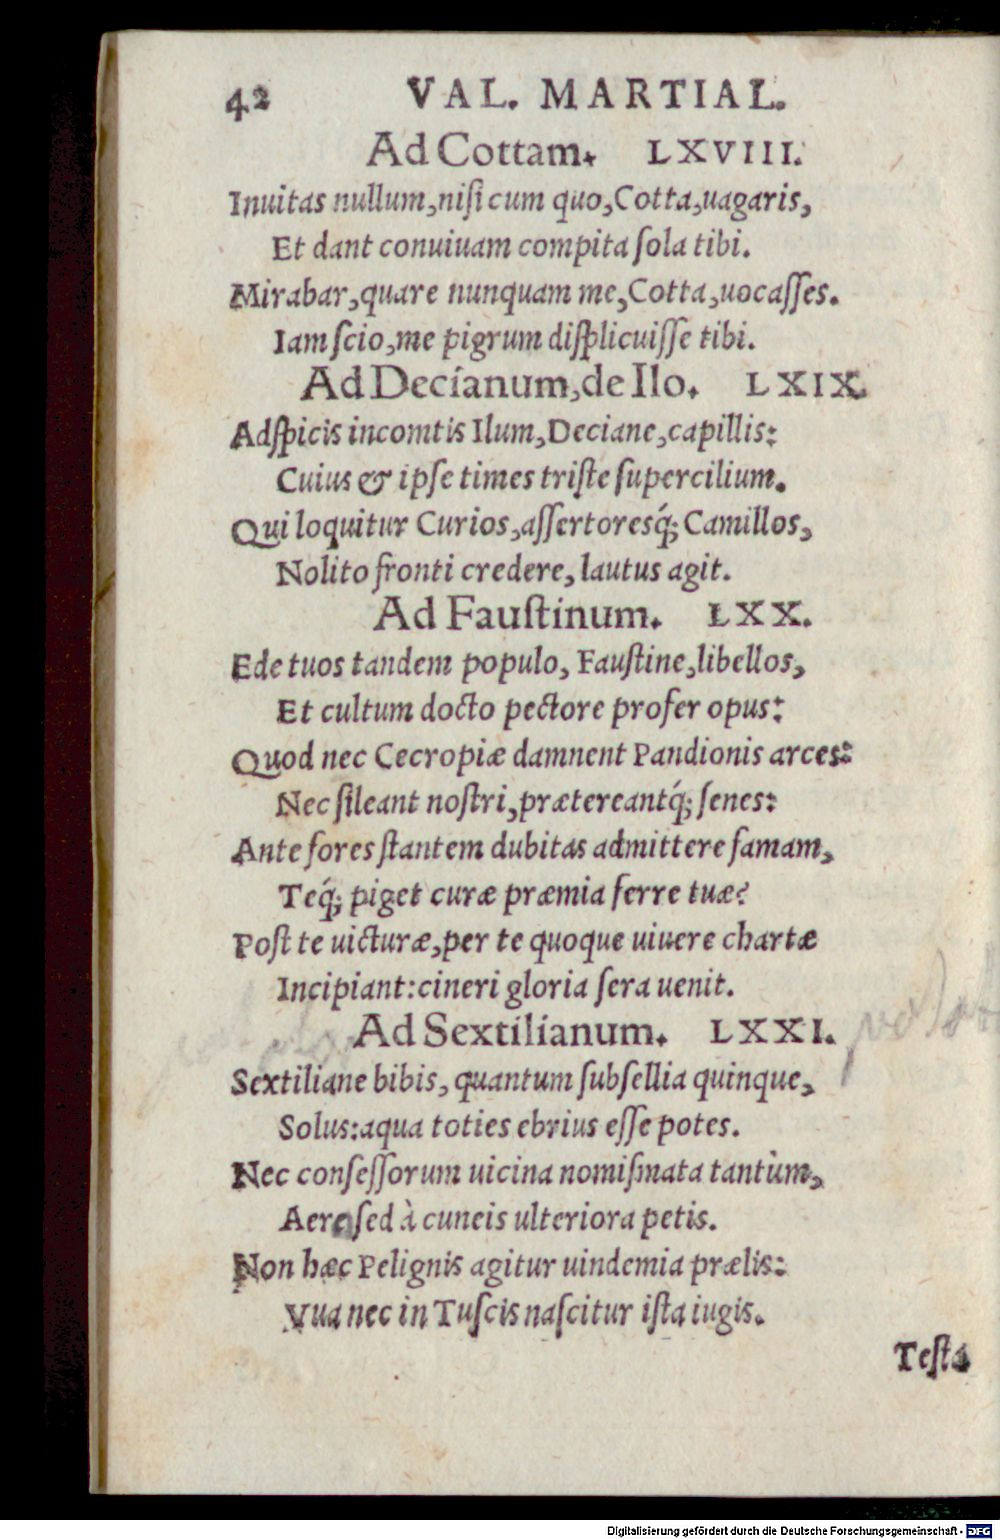 42 VAL. MARTIAL.
Ad Cottam. LXVIII.
Inuitas nullum, niſi cum quo, Cotta, uagaris,
Et dant conuiuam compita ſola tibi.
Mirabar, quare nunquam me, Cotta, uocaſſes.
Iam ſcio, me pigrum diſplicuiſſe tibi.
Ad Decianum, de Ilo. LXIX.
Adſpicis incomtis Ilum, Deciane, capillis:
Cuius & ipſe times triſte ſupercilium.
Qui loquitur Curios, aſſertoresq́; Camillos,
Nolito fronti credere, lautus agit.
Ad Fauſtinum. LXX.
Ede tuos tandem populo, Fauſtine, libellos,
Et cultum docto pectore profer opus:
Quod nec Cecropiæ damnent Pandionis arces:
Nec ſileant noſtri, prætereantq́; ſenes:
Ante fores ſtantem dubitas admittere famam,
Teq́; piget curæ præmia ferre tuæ?
Poſt te uicturæ, per te quoque uiuere chartæ
Incipiant: cineri gloria ſera uenit.
Ad Sextilianum. LXXI.
Sextiliane bibis, quantum ſubſellia quinque,
Solus: aqua toties ebrius eſſe potes.
Nec conſeſſorum uicina nomiſmata tantùm,
Aera ſed à cuneis ulteriora petis.
Non hæc Pelignis agitur uindemia prælis:
Vua nec in Tuſcis naſcitur iſta iugis.
Teſta
Digitalisierung gefördert durch die Deutsche Forschungsgemeinschaft - DFG